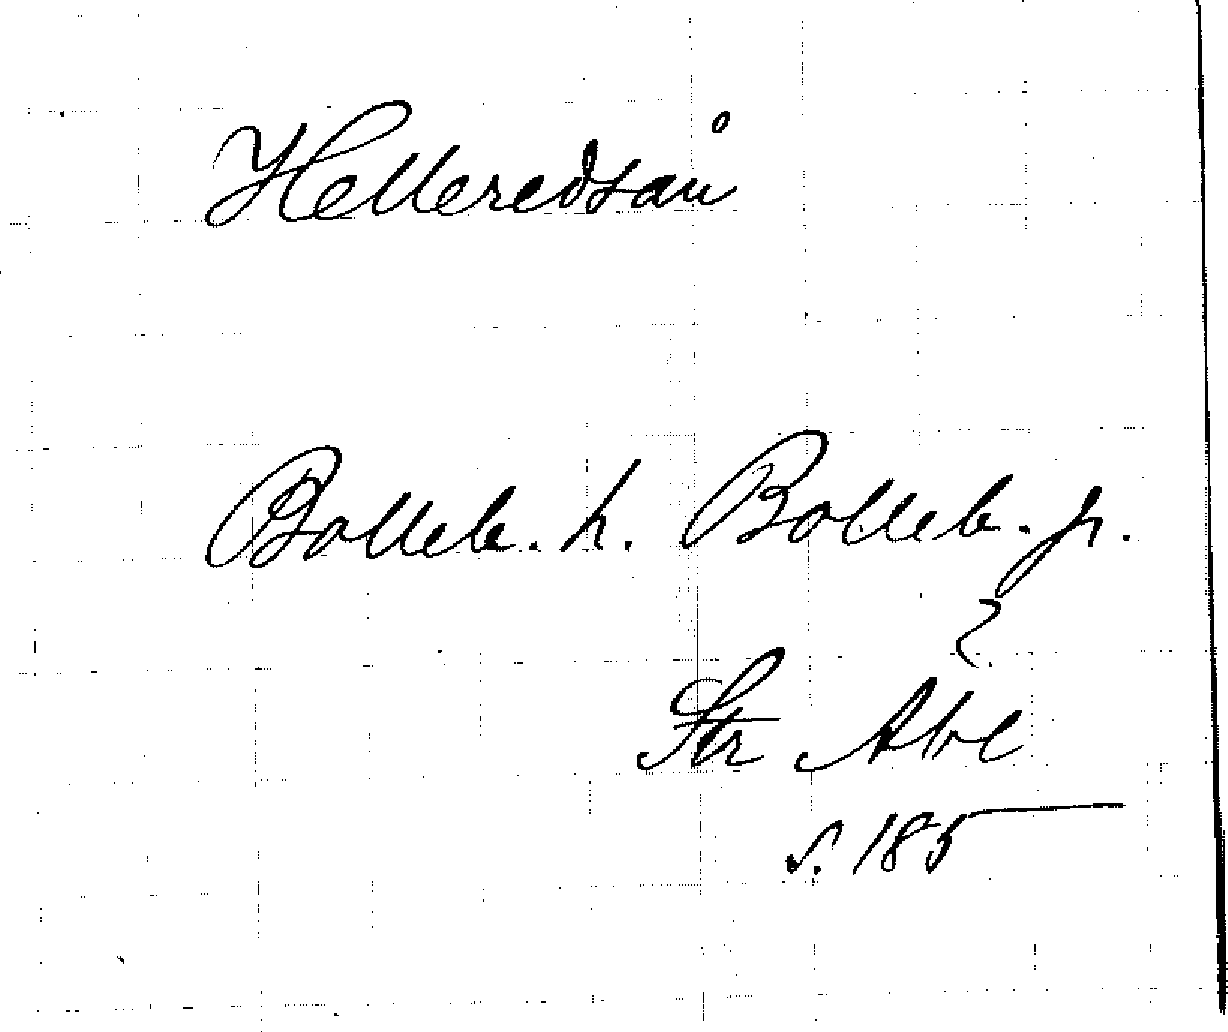 Helleredsån
Bolleb. h. Bolleb. sn.
Str
s. 185